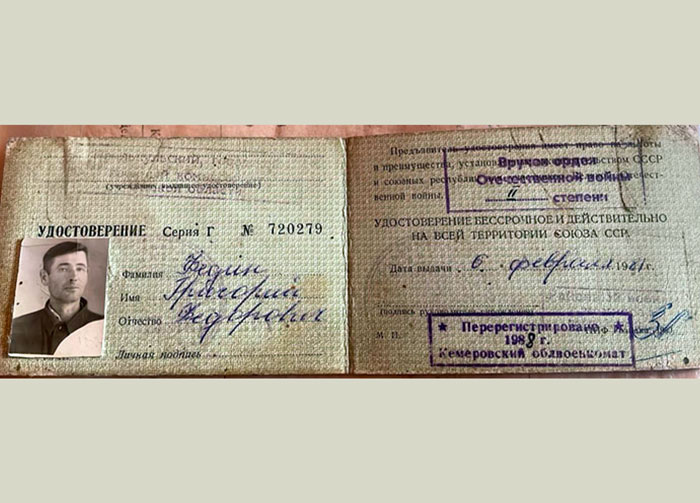 (учреждение, выдавшее удостоверение)
УДОСТОВЕРЕНИЕ Серия Г № 720279
Фамилия Федин
Имя Григорий
Отчество Федорович
Личная подпись
Предъявитель удостоверения имеет право на льготы
и преимущества, СССР
и союзных
венной войны.
Вручен орден
Отечественной войны
II степени
УДОСТОВЕРЕНИЕ БЕССРОЧНОЕ И ДЕЙСТВИТЕЛЬНО
НА ВСЕЙ ТЕРРИТОРИИ СОЮЗА ССР.
Дата выдачи 6 февраля 1981г.
М. П.
★ Перерегистрировано ★
1988 г.
Кемеровский облвоенкомат